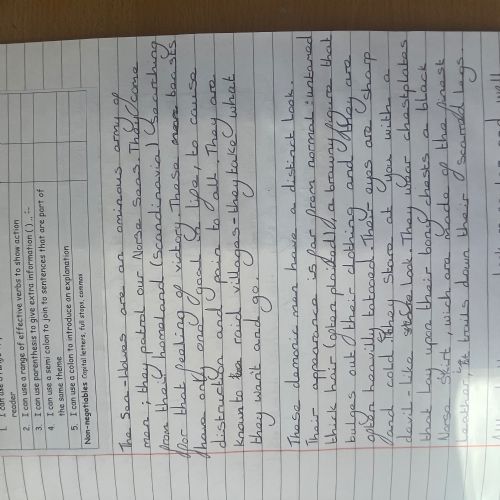 reader
2. I can use a range of effective verbs to show action
3. I can use parenthesis to give extra information ( ) , -
4. I can use a semi colon to join to sentences that are part of
the same theme
5. I can use a colon to introduce an explanation
Non-negotiables capital letters, full stops, commas
The Sea-wolves are an ominous army of
men ; they patrol our Norse seas. They come
from their homeland (scandinavia) searching
for that feeling of victory. These beasts
have only one goal in life, to cause
distruction and pain to all. They are
known to raid villages - they take what
they want and go.
These demonic men have a distinct look.
Their appearance is far from normal : untared
thick hair (often plaited), a brawny figure that
bulges out of their clothing and they are
often heavilly tatooed. Their eyes are sharp
and cold. They stare at you with a
devil-like look. They wear chestplates
that lay upon their bony chests a black
Norse skirt, wich are made of the finest
leather. It trails down their scarred legs.